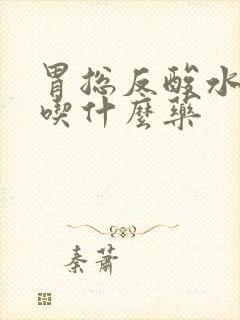 胃总反酸水
喫什麼藥
秦蕭